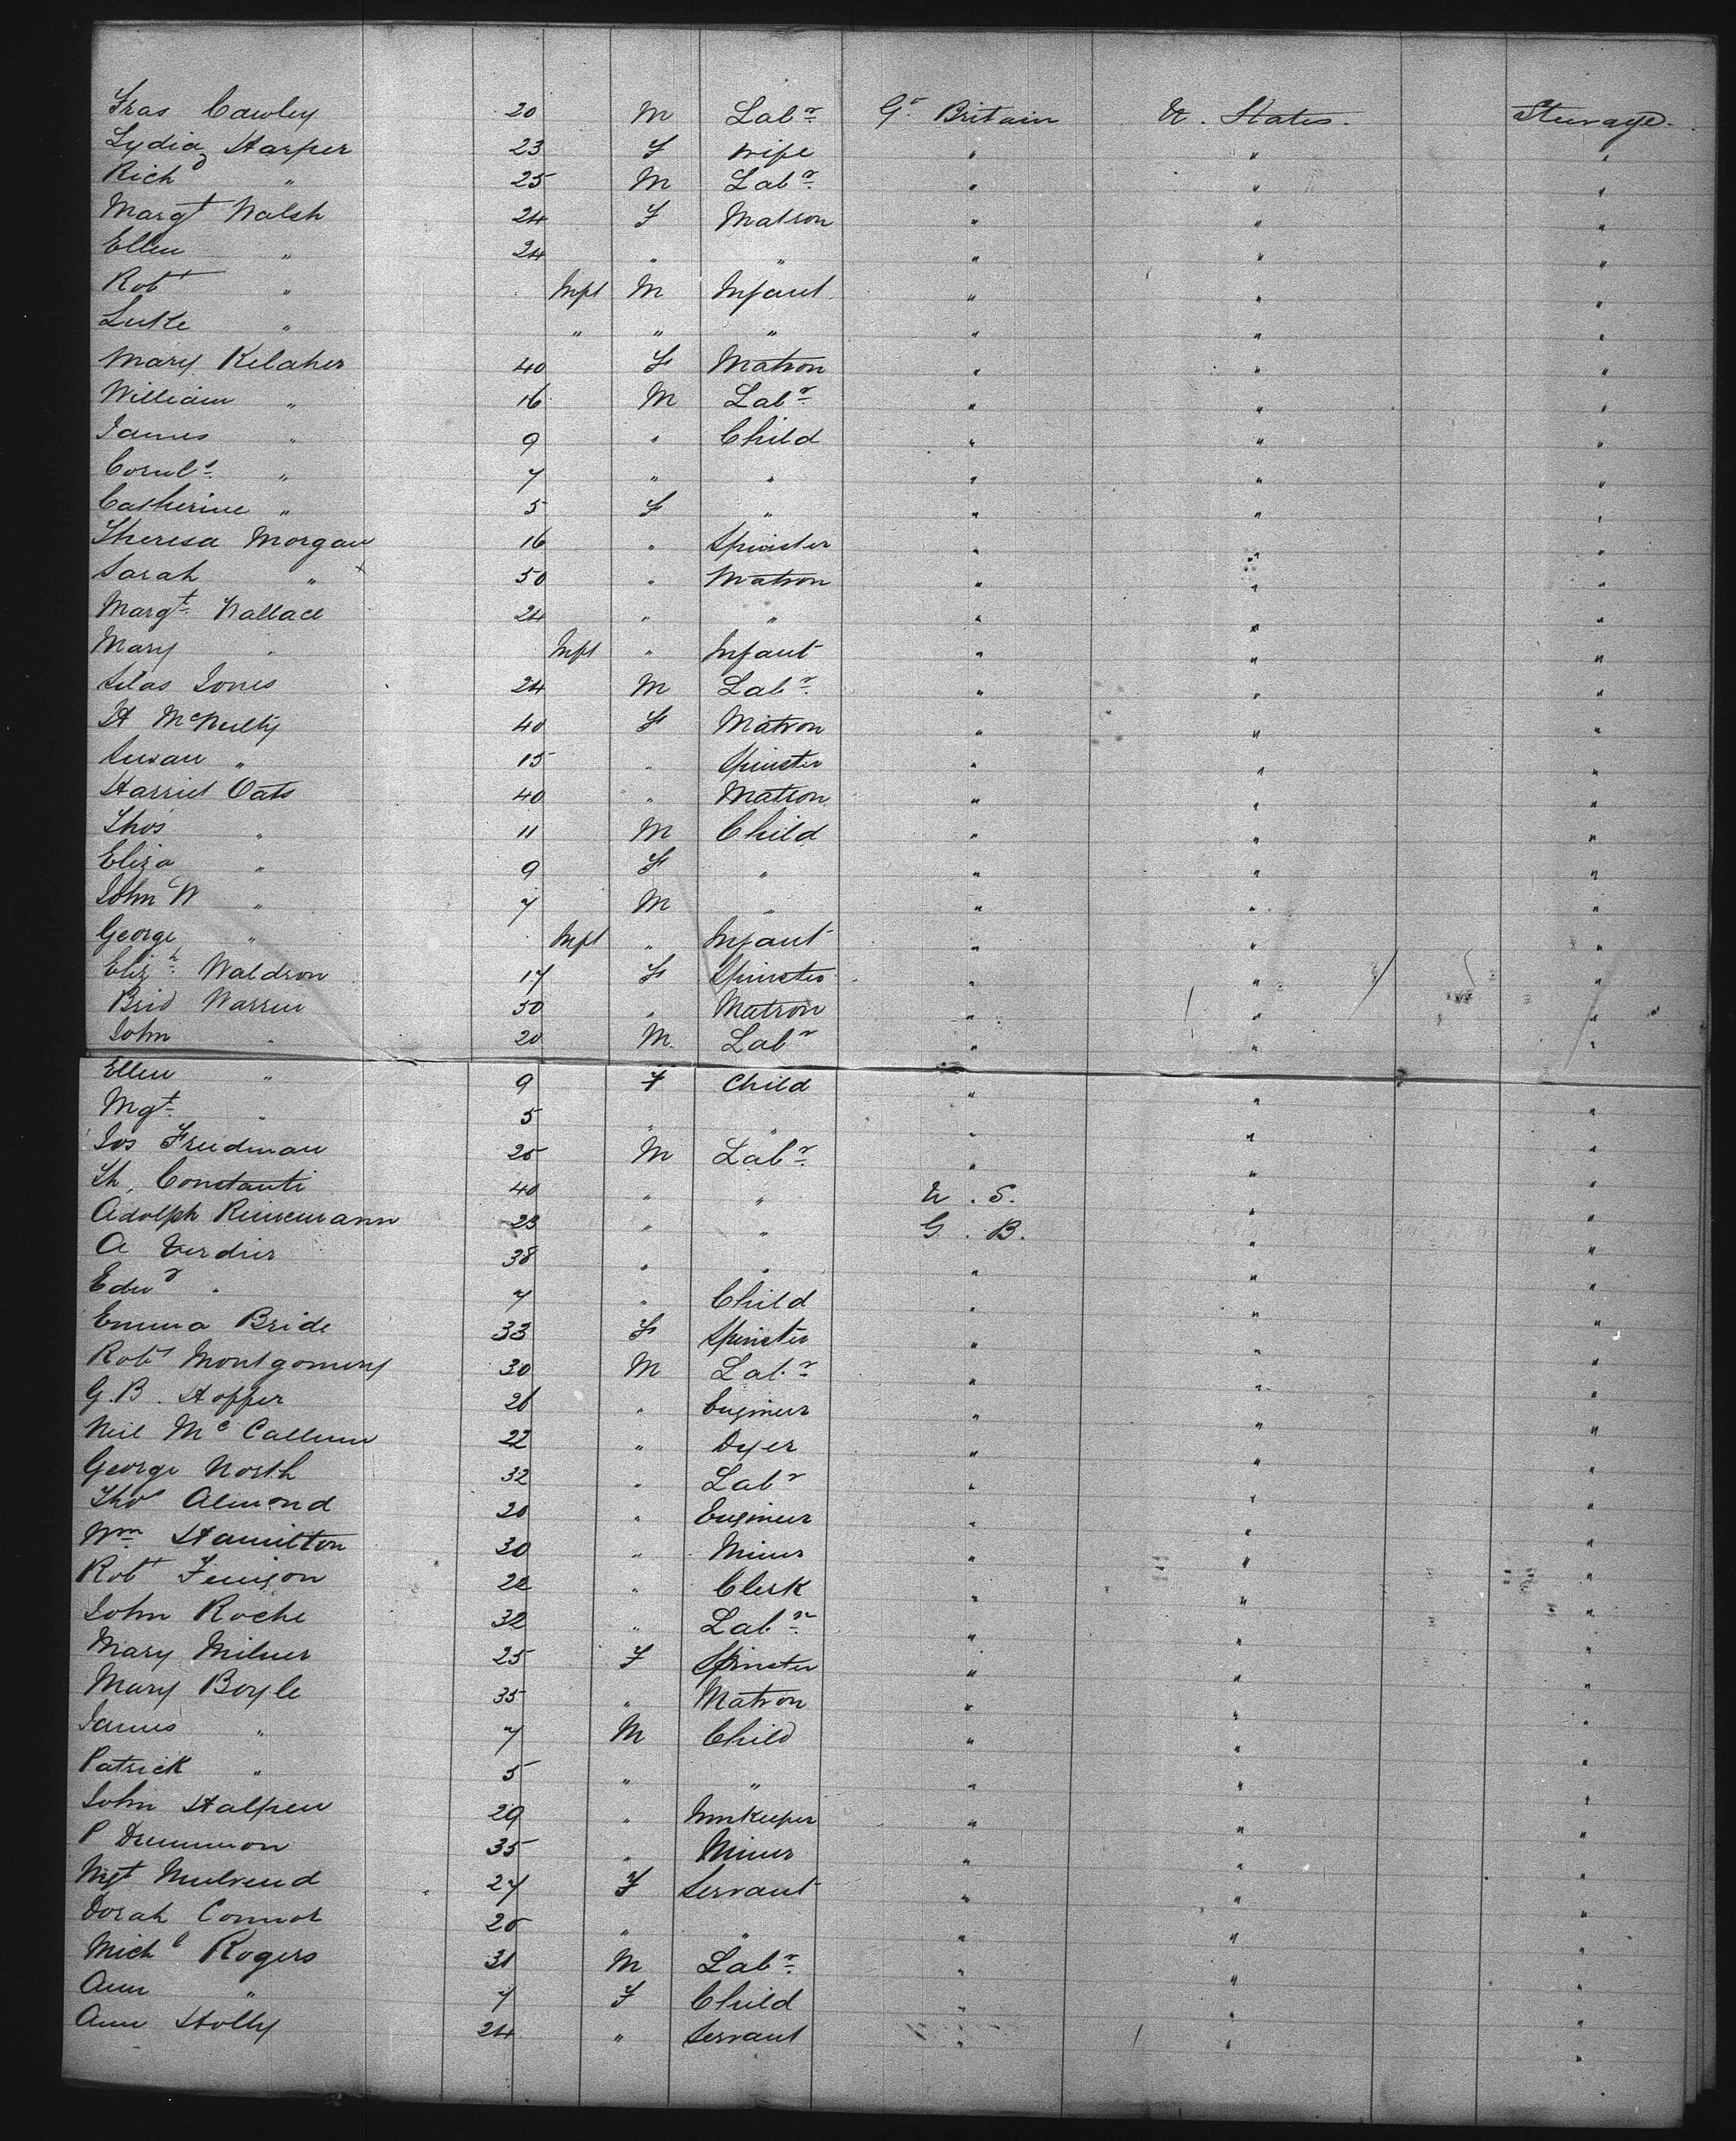 Fras Cawley 20 M Labr Gt Britain U. States. Steerage.
Lydia Harper 23 F Wife " " "
Richd " 25 M Labr " " "
Margt Walsh 24 F Matron " " "
Ellen " 24 " " " " "
Robt " Inft M Infant " " "
Luke " " " " " " "
Mary Kelaher 40 F Matron " " "
William " 16 M Labr " " "
James " 9 " Child " " "
Cornls " 7 " " " " "
Catherine " 5 F " " " "
Theresa Morgan 16 " Spinster " " "
Sarah " 50 " Matron " " "
Margt Wallace 24 " " " " "
Mary " Inft " Infant " " "
Silas Jones 24 M Labr " " "
H McNulty 40 F Matron " " "
Susan " 15 " Spinster " " "
Harriet Oats 40 " Matron " " "
Thos " 11 M Child " " "
Eliza " 9 F " " " "
John W " 7 M " " " "
George " Inft " Infant " " "
Elizh Waldron 17 F Spinster " " "
Brid Warren 50 " Matron " " "
John " 20 M Labr " " "
Ellen " 9 F Child " " "
Mgt " 5 " " " " "
Jos Freedman 25 M Labr " " "
Th, Constanti 40 " " U. S. " "
Adolph 23 " " G. B. " "
A Verdier 38 " " " " "
Edwd " 7 " Child " " "
Emma Bride 33 F Spinster " " "
Robt Montgomery 30 M Labr " " "
G. B. Hopper 26 " Engineer " " "
Neil McCallum 22 " Dyer " " "
George North 32 " Labr " " "
Thos Almond 20 " Engineer " " "
Wm Hamilton 30 " Miner " " "
Robt 22 " Clerk " " "
John Roche 32 " Labr " " "
Mary Milner 25 F Spinster " " "
Mary Boyle 35 " Matron " " "
James " 7 M Child " " "
Patrick " 5 " " " " "
John Halpen 29 " Innkeeper " " "
P 35 " Miner " " "
Mgt 27 F Servant " " "
Dorah Connor 20 " " " " "
Michl Rogers 31 M Labr " " "
Ann " 7 F Child " " "
Ann Holly 24 " Servant " " "